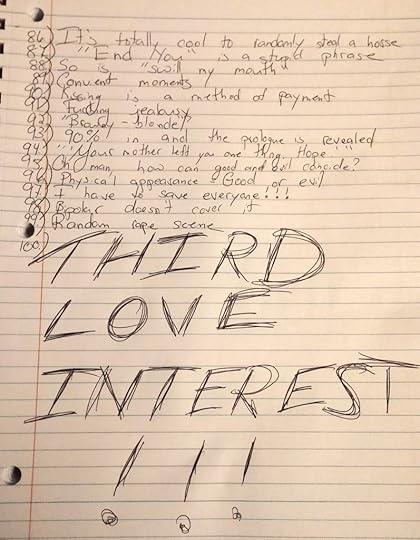 86.) It's totally cool to randomly steal a horse
87.) "End You" is a stupid phrase
88.) So is "swill my mouth"
89.) Convient moments
90.) is a method of payment
91.) Fucking jealousy
92.) "Brandy-blonde"
93.) 90% in and the prologue is revealed
94.) "'Your mother left you one thing. Hope'"
95.) Oh man, how can good and evil concide?
96.) Physical appearance = Good or evil
97.) I have to save everyone!!!
98.) Bipolar doesn't cover it
99.) Random rape scene
100.)
THIRD
LOVE
INTEREST
!!!